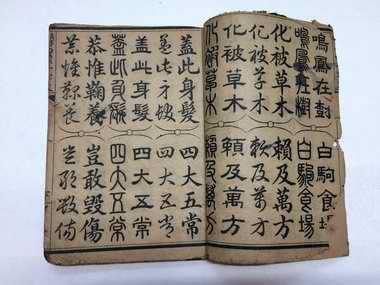 鳴鳳在樹 白駒食場
鳴鳳在樹 白駒食場
化被草木 賴及萬方
化被草木 賴及萬方
化被草木 賴及萬方
化被草木 賴及萬方
蓋此身髮 四大五常
蓋此身髮 四大五常
蓋此身髮 四大五常
蓋此身髮 四大五常
恭惟鞠養 豈敢毀傷
恭惟鞠養 豈敢毀傷